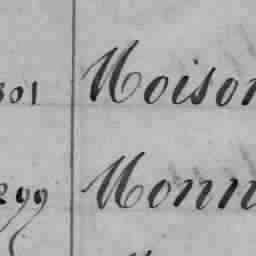 301 Moison
299 Monn